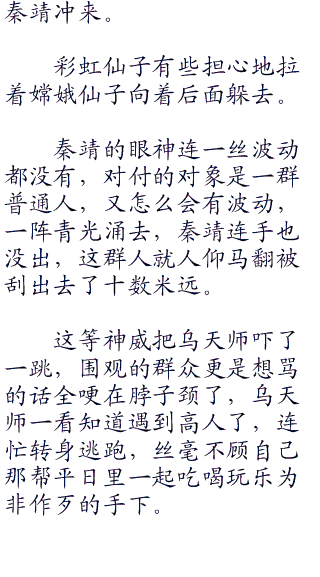 秦靖冲来。
彩虹仙子有些担心地拉
着嫦娥仙子向着后面躲去。
秦靖的眼神连一丝波动
都没有，对付的对象是一群
普通人，又怎么会有波动，
一阵青光涌去，秦靖连手也
没出，这群人就人仰马翻被
刮出去了十数米远。
这等神威把乌天师吓了
一跳，围观的群众更是想骂
的话全哽在脖子颈了，乌天
师一看知道遇到高人了，连
忙转身逃跑，丝毫不顾自己
那帮平日里一起吃喝玩乐为
非作歹的手下。